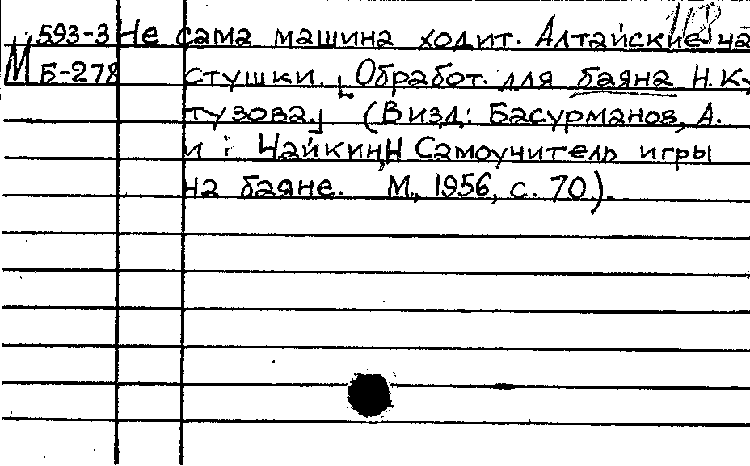 118
593-3 Не сама машина ходит. Алтайские ча
М Б-278 стушки. [Обработ. для баяна Н. Ку
тузова.] (В изд: Басурманов, А.
и Чайкин, Н Самоучитель игры
на баяне. М., 1956, с. 70).